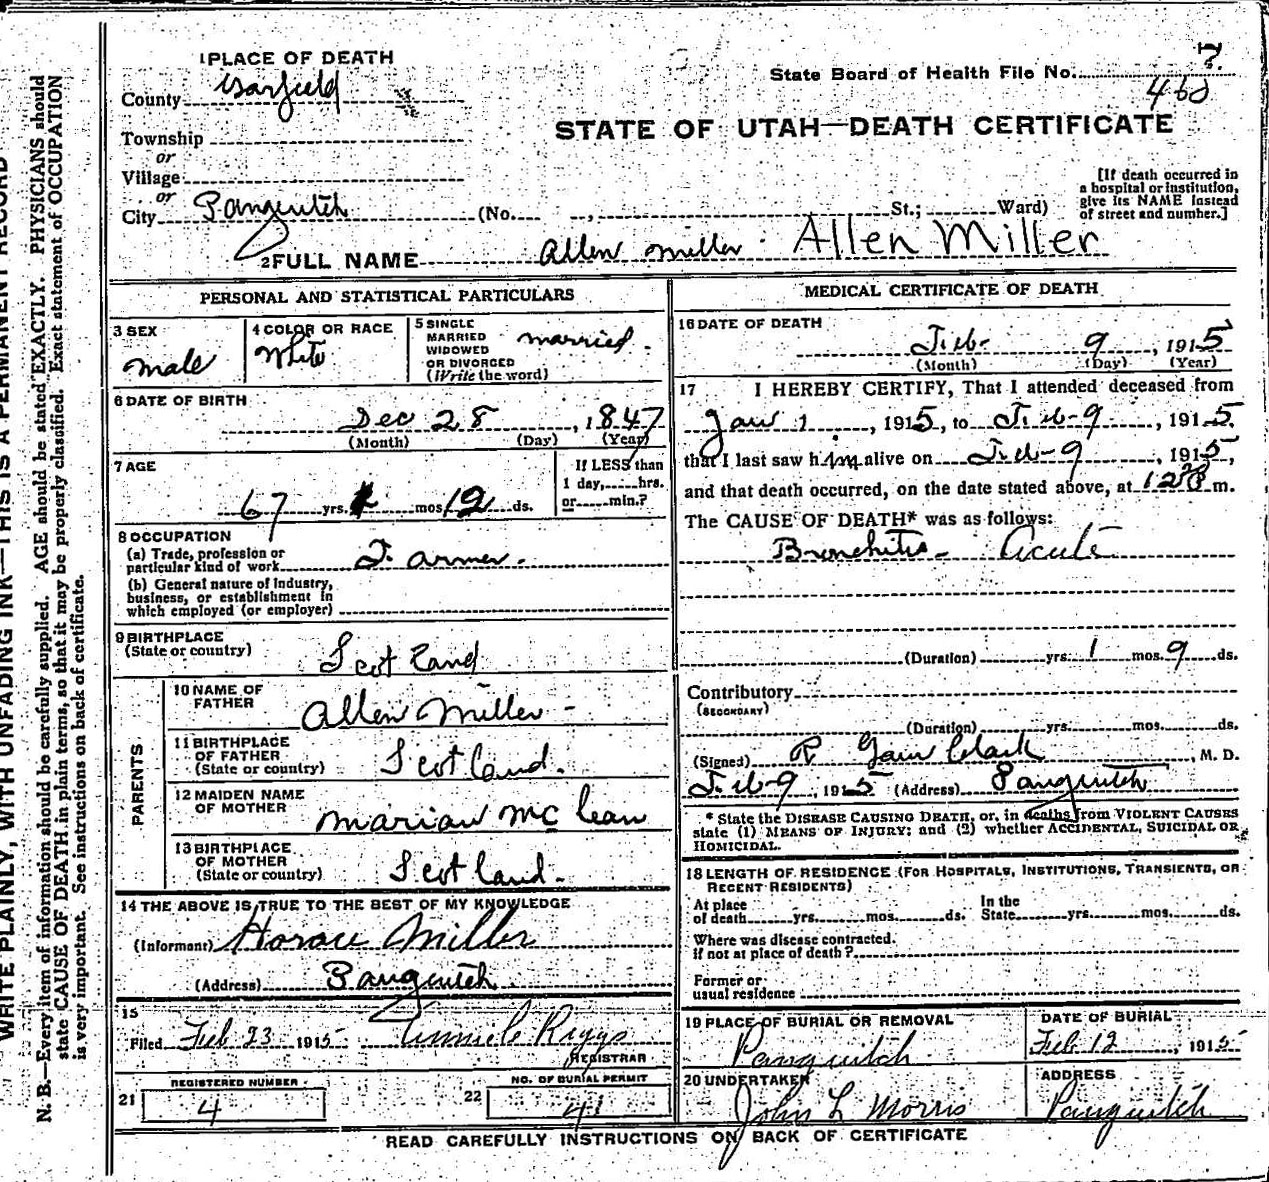 WRITE PLAINLY, WITH UNFADING INK—THIS IS A PERMANENT RECORD
N. B.—Every item of information should be carefully supplied. AGE should be stated EXACTLY. PHYSICIANS should
state CAUSE OF DEATH in plain terms, so that it may be properly classified. Exact statement of OCCUPATION
is very important. See instructions on back of certificate.
1 PLACE OF DEATH
County Garfield
Township
or
Village
or
City Panguitch (No. , St.; Ward)
State Board of Health File No. 7.
460
STATE OF UTAH—DEATH CERTIFICATE
[If death occurred in
a hospital or institution,
give its NAME instead
of street and number.]
2 FULL NAME Allen Miller Allen Miller
PERSONAL AND STATISTICAL PARTICULARS
3 SEX
male
4 COLOR OR RACE
White
5 SINGLE
MARRIED
WIDOWED
OR DIVORCED
(Write the word)
married.
6 DATE OF BIRTH
Dec 28, 1847
(Month) (Day) (Year)
7 AGE
67 yrs. 1 mos. 12 ds.
If LESS than
1 day, hrs.
or min.?
8 OCCUPATION
(a) Trade, profession or
particular kind of work Farmer.
(b) General nature of industry,
business, or establishment in
which employed (or employer)
9 BIRTHPLACE
(State or country)
Scotland
PARENTS
10 NAME OF
FATHER
Allen Miller -
11 BIRTHPLACE
OF FATHER
(State or country)
Scotland.
12 MAIDEN NAME
OF MOTHER
Marian McLean
13 BIRTHPLACE
OF MOTHER
(State or country)
Scotland.
14 THE ABOVE IS TRUE TO THE BEST OF MY KNOWLEDGE
(Informant) Horace Miller
(Address) Panguitch
15
Filed Feb 23 1915 Riggs
REGISTRAR
REGISTERED NUMBER
21 4
NO. OF BURIAL PERMIT
22 41
MEDICAL CERTIFICATE OF DEATH
16 DATE OF DEATH
Feb. 9, 1915
(Month) (Day) (Year)
17 I HEREBY CERTIFY, That I attended deceased from
Jan 1, 1915, to Feb-9, 1915,
that I last saw him alive on Feb-9, 1915,
and that death occurred, on the date stated above, at m.
The CAUSE OF DEATH* was as follows:
Bronchitis- acute
(Duration) yrs. 1 mos. 9 ds.
Contributory
(SECONDARY)
(Duration) yrs. mos. ds.
(Signed) R Garn Clark, M. D.
Feb-9, 1915 (Address) Panguitch
* State the DISEASE CAUSING DEATH, or, in deaths from VIOLENT CAUSES
state (1) MEANS OF INJURY; and (2) whether ACCIDENTAL, SUICIDAL OR
HOMICIDAL.
18 LENGTH OF RESIDENCE (FOR HOSPITALS, INSTITUTIONS, TRANSIENTS, OR
RECENT RESIDENTS)
At place
of death yrs. mos. ds.
In the
State yrs. mos. ds.
Where was disease contracted.
if not at place of death?
Former or
usual residence
19 PLACE OF BURIAL OR REMOVAL
Panguitch
DATE OF BURIAL
Feb 12, 1915
20 UNDERTAKER
John L Morris
ADDRESS
Panguitch
READ CAREFULLY INSTRUCTIONS ON BACK OF CERTIFICATE